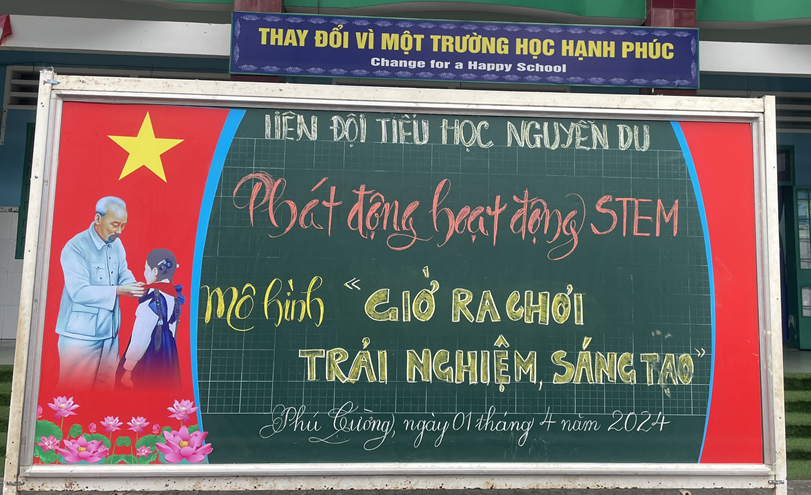 THAY ĐỔI VÌ MỘT TRƯỜNG HỌC HẠNH PHÚC
Change for a Happy School
LIÊN ĐỘI TIỂU HỌC NGUYỄN DU
Phát động hoạt động STEM
Mô hình "GIỜ RA CHƠI
TRẢI NGHIỆM, SÁNG TẠO"
Phú Cường, ngày 01 tháng 4 năm 2024